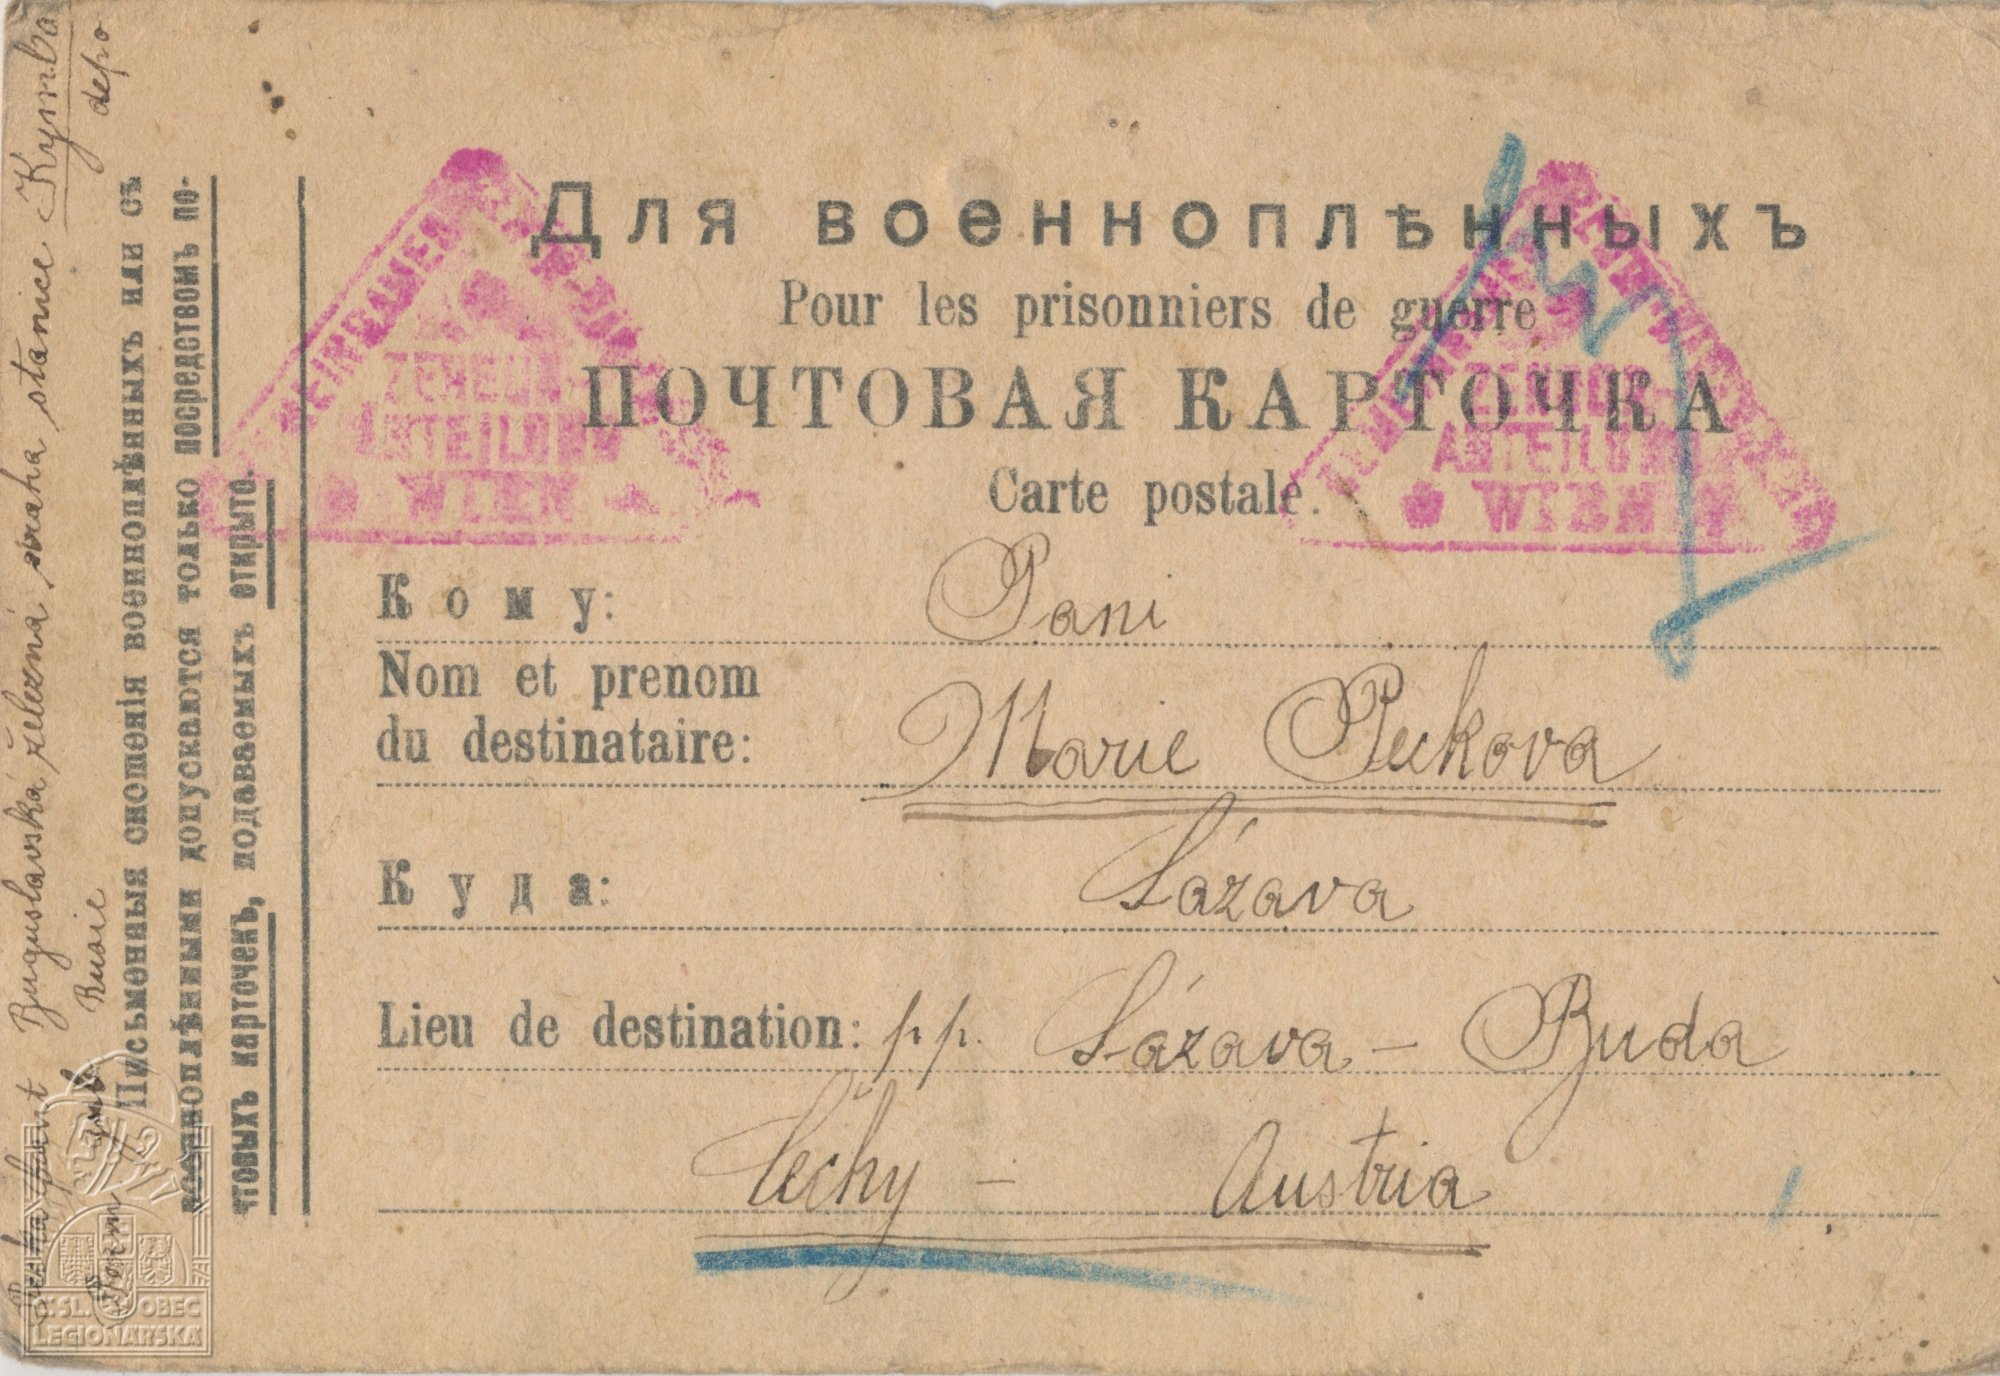 Для военноплѣнныхъ
Pour les prisonniers de guerre
ПОЧТОВАЯ КАРТОЧКА
Carte postale.
ZENSUR
ABTEILUNG
WIEN
ZENSUR
ABTEILUNG
WIEN
Кому: Pani
Nom et prenom
du destinataire: Marie Peckova
Куда: Sázava
Lieu de destination: pp. Sázava – Buda
Čechy – Austria
Письменныя сношенія военноплѣнныхъ или съ
военноплѣнными допускаются только посредствомъ по-
чтовыхъ карточекъ, подаваемыхъ открыто.
Buguslavská železná draha stanice Kymba
Rusie
depo
Č.SL. OBEC
LEGIONÁŘSKÁ